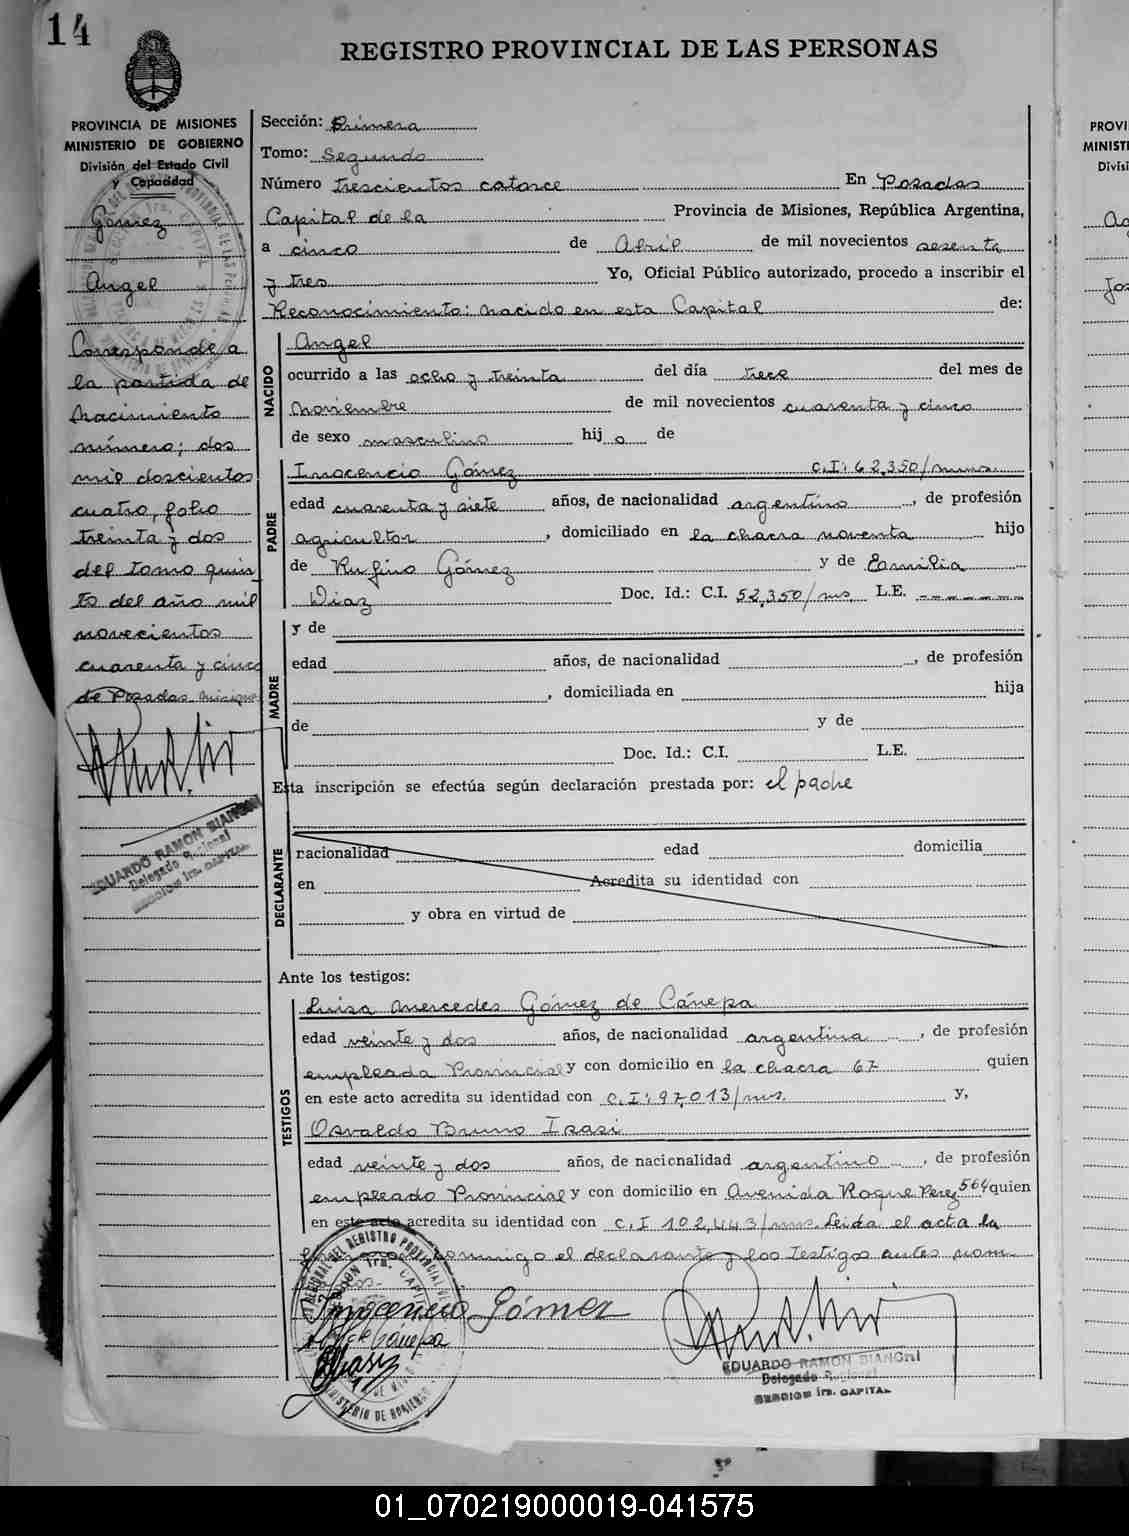 14
REGISTRO PROVINCIAL DE LAS PERSONAS
PROVINCIA DE MISIONES
MINISTERIO DE GOBIERNO
División del Estado Civil
y Capacidad
Gómez
Angel
Corresponde a
la partida de
Nacimiento
número; dos
mil doscientos
cuatro, folio
treinta y dos
del tomo quin
to del año mil
novecientos
cuarenta y cinco
de Posadas. Misiones
EDUARDO RAMON BIANCHI
Delegado Regional
SECCION 1ra. CAPITAL
Sección: Primera
Tomo: Segundo
Número trescientos catorce En Posadas
Capital de la Provincia de Misiones, República Argentina,
a cinco de Abril de mil novecientos sesenta
y tres Yo, Oficial Público autorizado, procedo a inscribir el
Reconocimiento: nacido en esta Capital de:
NACIDO
Angel
ocurrido a las ocho y treinta del día trece del mes de
Noviembre de mil novecientos cuarenta y cinco
de sexo masculino hijo de
PADRE
Inocencio Gómez C.I: 62,350/mnes.
edad cuarenta y siete años, de nacionalidad argentino, de profesión
agricultor, domiciliado en la chacra noventa hijo
de Rufino Gómez y de Emilia
Diaz Doc. Id.: C.I. 52,350/ms. L.E. -------
MADRE
y de
edad años, de nacionalidad , de profesión
, domiciliada en hija
de y de
Doc. Id.: C.I. L.E.
Esta inscripción se efectúa según declaración prestada por: el padre
DECLARANTE
nacionalidad edad domicilia
en Acredita su identidad con
y obra en virtud de
Ante los testigos:
TESTIGOS
Luisa Mercedes Gómez de Cánepa
edad veinte y dos años, de nacionalidad argentina, de profesión
empleada Provincial y con domicilio en la chacra 67 quien
en este acto acredita su identidad con C.I: 97,013/ms. y,
Osvaldo Bruno Isasi
edad veinte y dos años, de nacionalidad argentino, de profesión
empleado Provincial y con domicilio en Avenida Roque Perez 564 quien
en este acto acredita su identidad con C.I 102,443/ms. Leída el acta la
conmigo el declarante y los testigos antes nom
Inocencio Gómez
de Cánepa
EDUARDO RAMON BIANCHI
Delegado Regional
SECCION 1ra. CAPITAL
PROVI
MINIST
Divisi
01_070219000019-041575